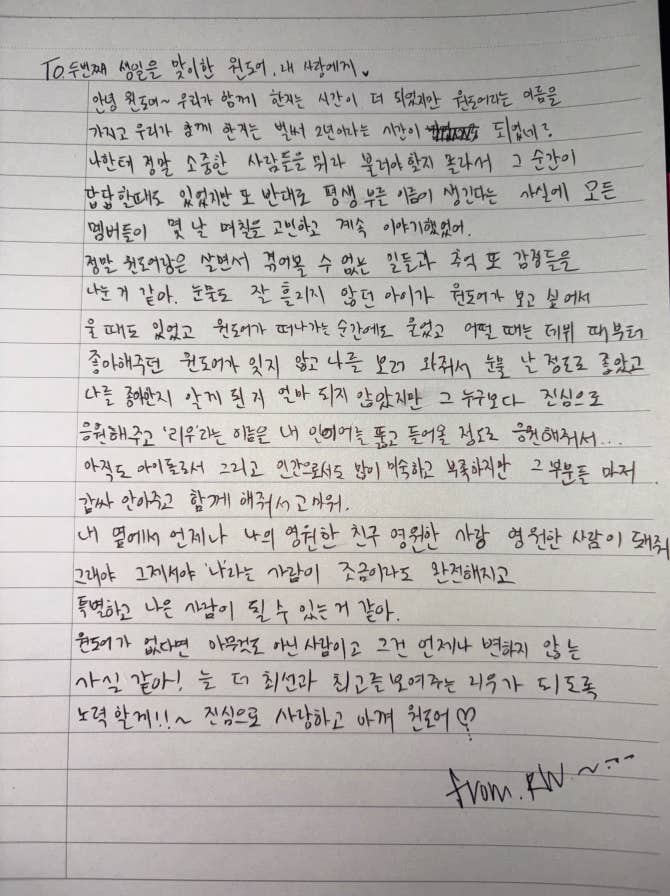 To. 두번째 생일을 맞이한 원도어, 내 사랑에게♥
안녕 원도어~ 우리가 함께 한지는 시간이 더 되었지만 원도어라는 이름을
가지고 우리가 함께 한지는 벌써 2년이라는 시간이 되었네?
나한테 정말 소중한 사람들을 뭐라 불러야할지 몰라서 그 순간이
답답할때도 있었지만 또 반대로 평생 부를 이름이 생긴다는 사실에 모든
멤버들이 몇 날 며칠을 고민하고 계속 이야기했었어.
정말 원도어랑은 살면서 겪어볼 수 없는 일들과 추억 또 감정들을
나눈 거 같아. 눈물도 잘 흘리지 않던 아이가 원도어가 보고 싶어서
울 때도 있었고 원도어가 떠나가는 순간에도 울었고 어떨 때는 데뷔 때부터
좋아해주던 원도어가 잊지 않고 나를 보러 와줘서 눈물 날 정도로 좋았고
나를 좋아한지 알게 된지 얼마 되지 않았지만 그 누구보다 진심으로
응원해주고 '리우'라는 이름은 내 인이어를 뚫고 들어올 정도로 응원해줘서...
아직도 아이돌로서 그리고 인간으로서도 많이 미숙하고 부족하지만 그 부분들 마저
감싸 안아주고 함께 해줘서 고마워.
내 옆에서 언제나 나의 영원한 친구 영원한 사랑 영원한 사람이 돼줘
그래야 그제서야 '나'라는 사람이 조금이라도 완전해지고
특별하고 나은 사람이 될 수 있는 거 같아.
원도어가 없다면 아무것도 아닌 사람이고 그건 언제나 변하지 않는
사실 같아! 늘 더 최선과 최고를 보여주는 리우가 되도록
노력 할게!!~ 진심으로 사랑하고 아껴 원도어♡
from. RW ~